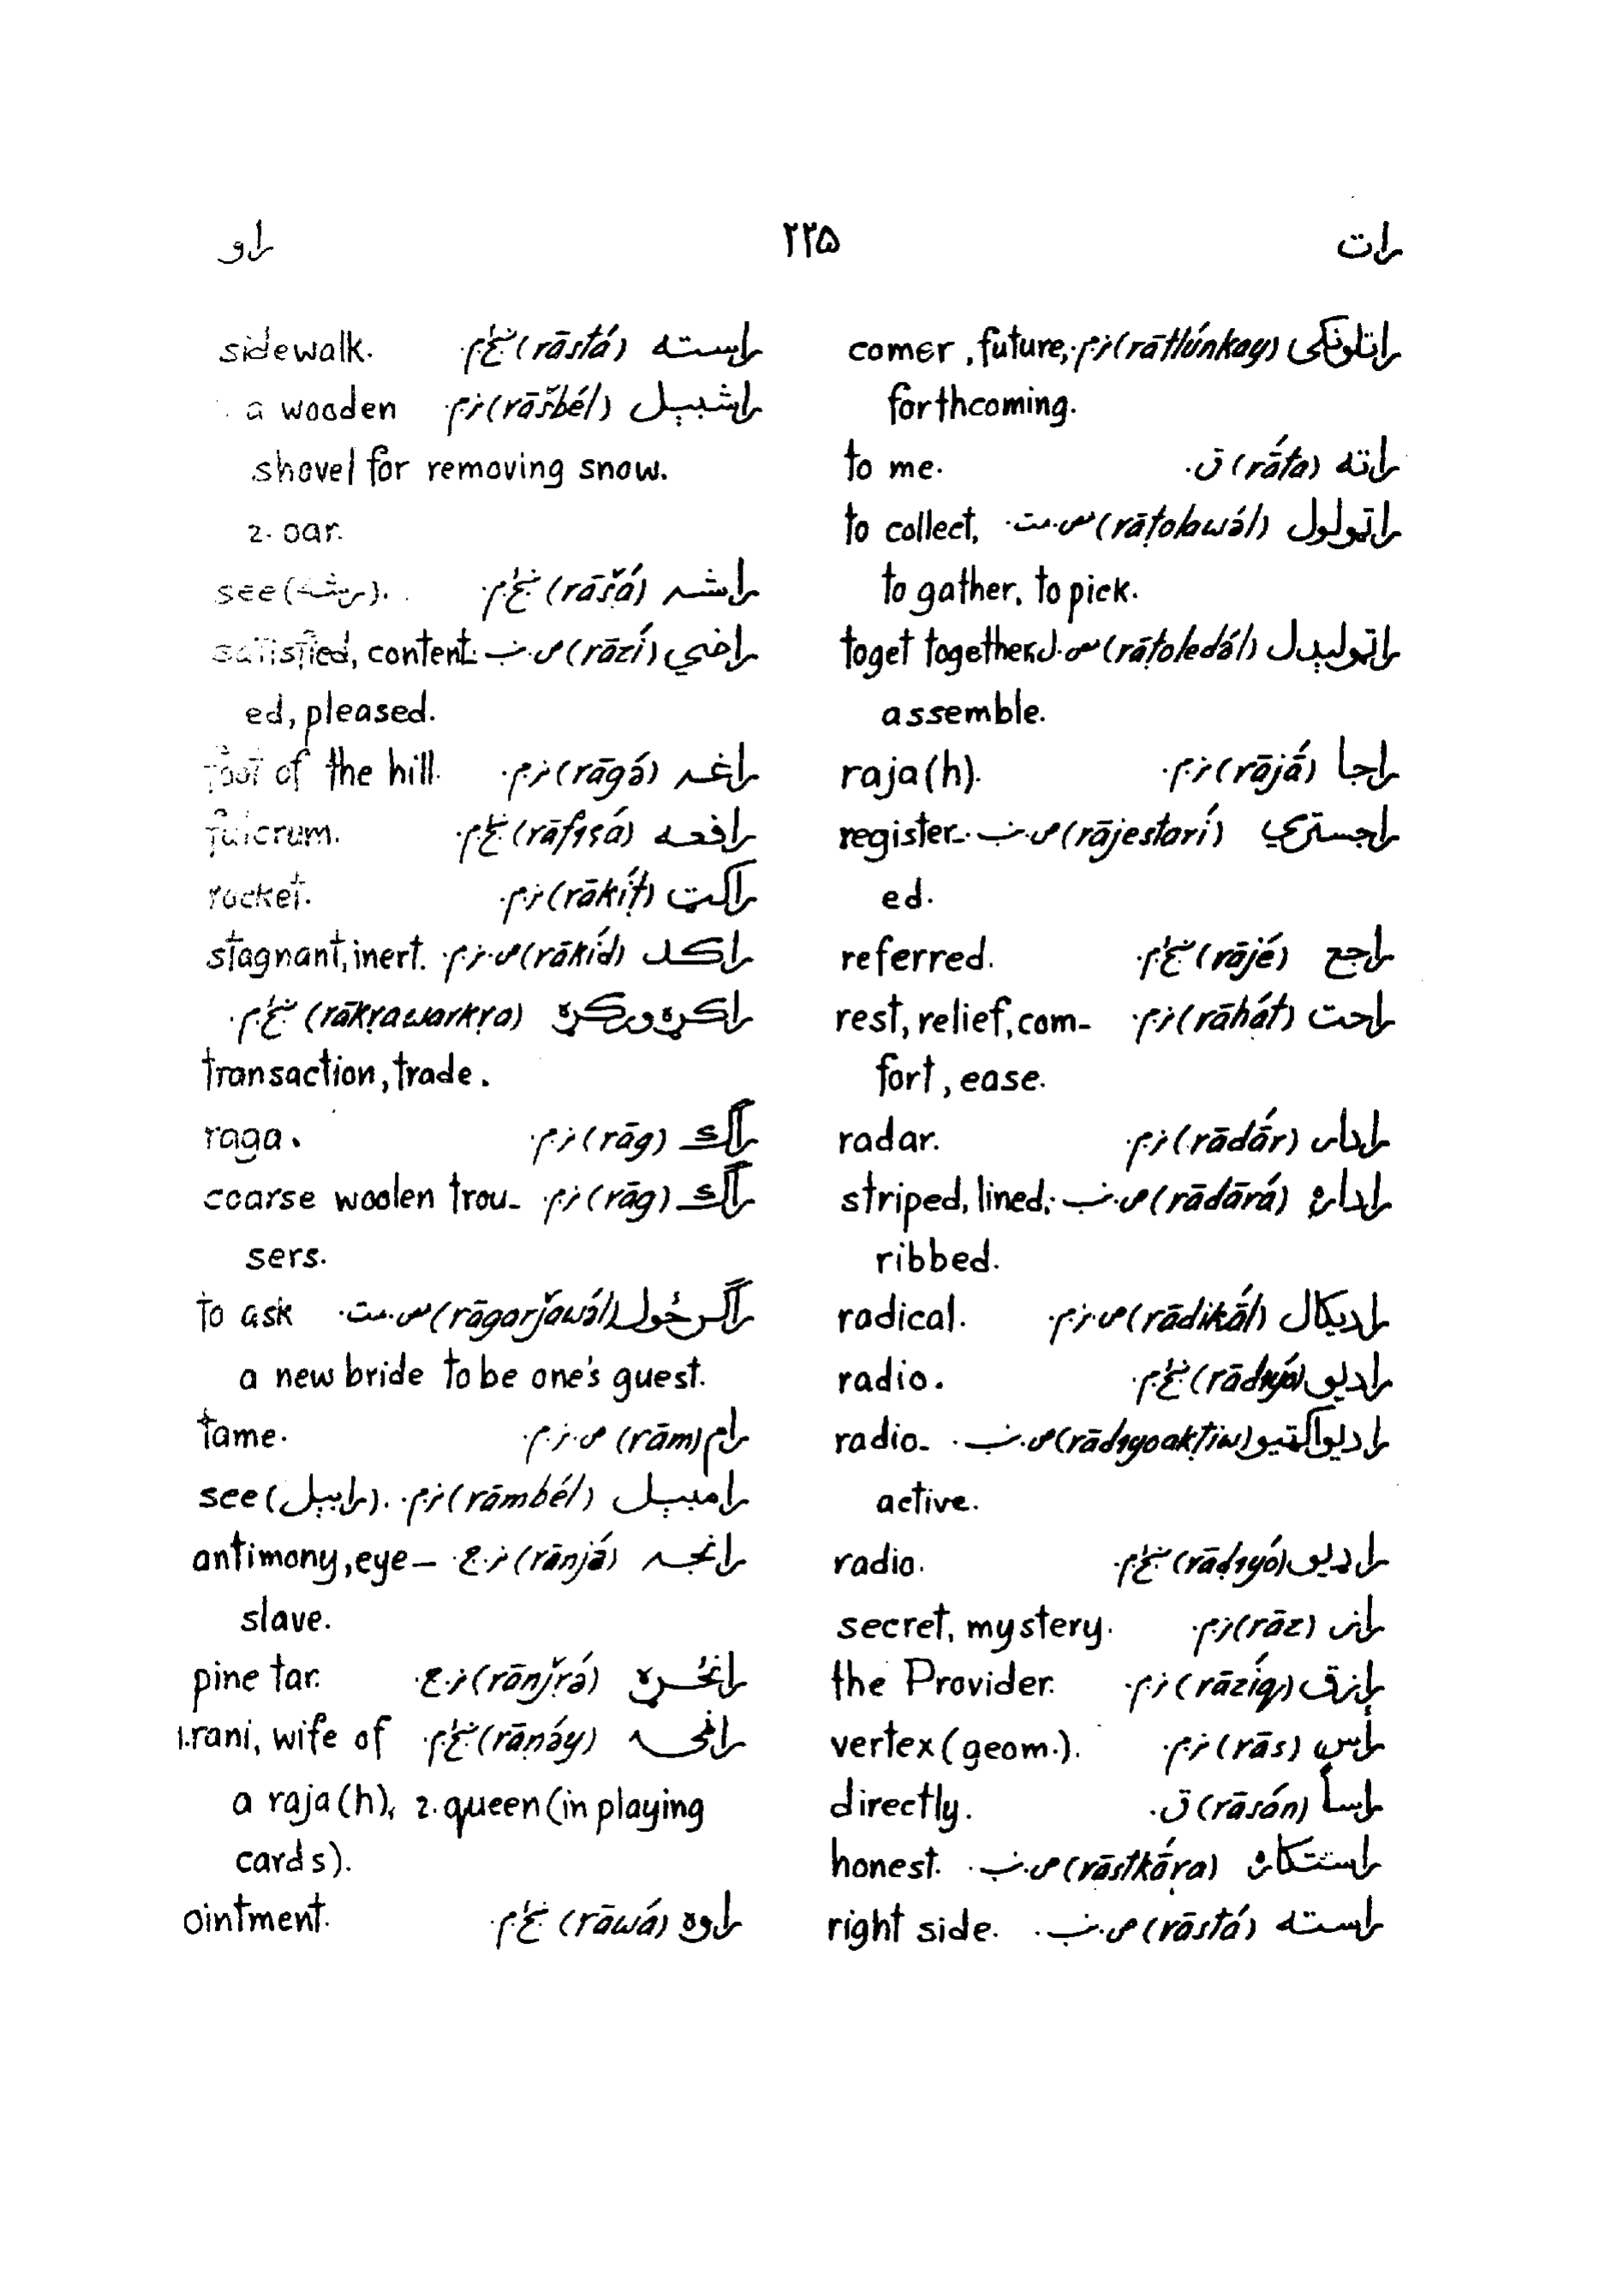 رات ۲۲۵ راو
راتلونکی (rātlúnkay) ن.م. comer, future,
forthcoming.
راته (rā́ta) ق. to me.
راټولول (rāṭolawə́l) س.مت. to collect,
to gather, to pick.
راټولیدل (rāṭoledə́l) س.ل. to get together,
assemble.
راجا (rājā́) ن.م. raja(h).
راجستري (rājestarí) ص.ب. register-
ed.
راجع (rājé) referred.
راحت (rāhát) ن.م. rest, relief, com-
fort, ease.
رادار (rādā́r) ن.م. radar.
راداره (rādārá) ص.ب. striped, lined,
ribbed.
رادیکال (rādikā́l) ص.ن.م. radical.
رادیو (rādıyó) radio.
رادیواکتیو (rādıyoakṭiw) ص.ب. radio-
active.
رادیو (rāḍıyó) radio.
راز (rāz) ن.م. secret, mystery.
رازق (rāzíq) ن.م. the Provider.
راس (rās) ن.م. vertex (geom.).
راساً (rāsán) ق. directly.
راستکاره (rāstkā́ra) ص.ب. honest.
راسته (rāstá) ص.ب. right side.
راسته (rāstá) sidewalk.
راشبېل (rāšbél) ن.م. a wooden
shovel for removing snow.
2. oar.
راشه (rāšá) see ( ).
راضي (rāzí) ص.ب. satisfied, content-
ed, pleased.
راغه (rāgə́) ن.م. foot of the hill.
رافعه (rāfıʂá) fulcrum.
راکټ (rākíṭ) ن.م. rocket.
راکد (rākíd) ص.ن.م. stagnant, inert.
راکړه ورکړه (rākṛawarkṛa)
transaction, trade.
راګ (rāg) ن.م. raga.
راګ (rāg) ن.م. coarse woolen trou-
sers.
راګرځول (rāgarǰawə́l) س.مت. to ask
a new bride to be one's guest.
رام (rām) ص.ن.م. tame.
رامبېل (rāmbél) ن.م. see (رابېل).
رانجه (rānjə́) ن.ج. antimony, eye-
slave.
رانځړه (rānǰṛə́) ن.ج. pine tar.
(rāṇə́y) 1. rani, wife of
a raja(h), 2. queen (in playing
cards).
راوه (rāwá) ointment.